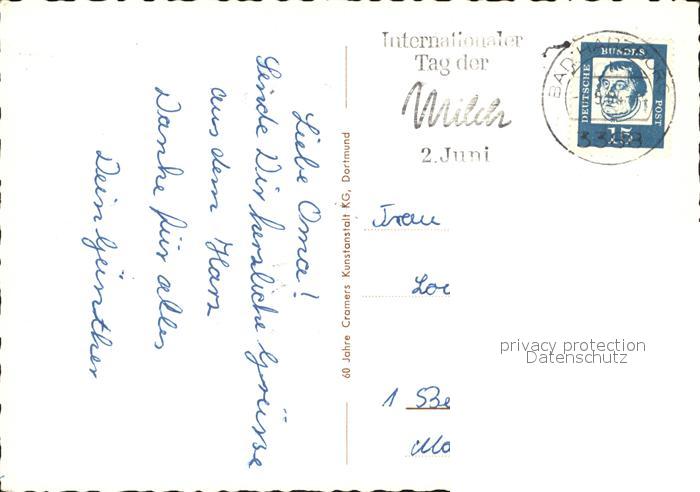 Liebe Oma!
Sende Dir herzliche Grüsse
aus dem Harz
Danke für alles
Dein Günther
60 Jahre Cramers Kunstanstalt KG, Dortmund
Internationaler
Tag der
Milch
2. Juni
BAD HARZBURG
3388
DEUTSCHE BUNDESPOST
15
Frau
1 Be
privacy protection
Datenschutz